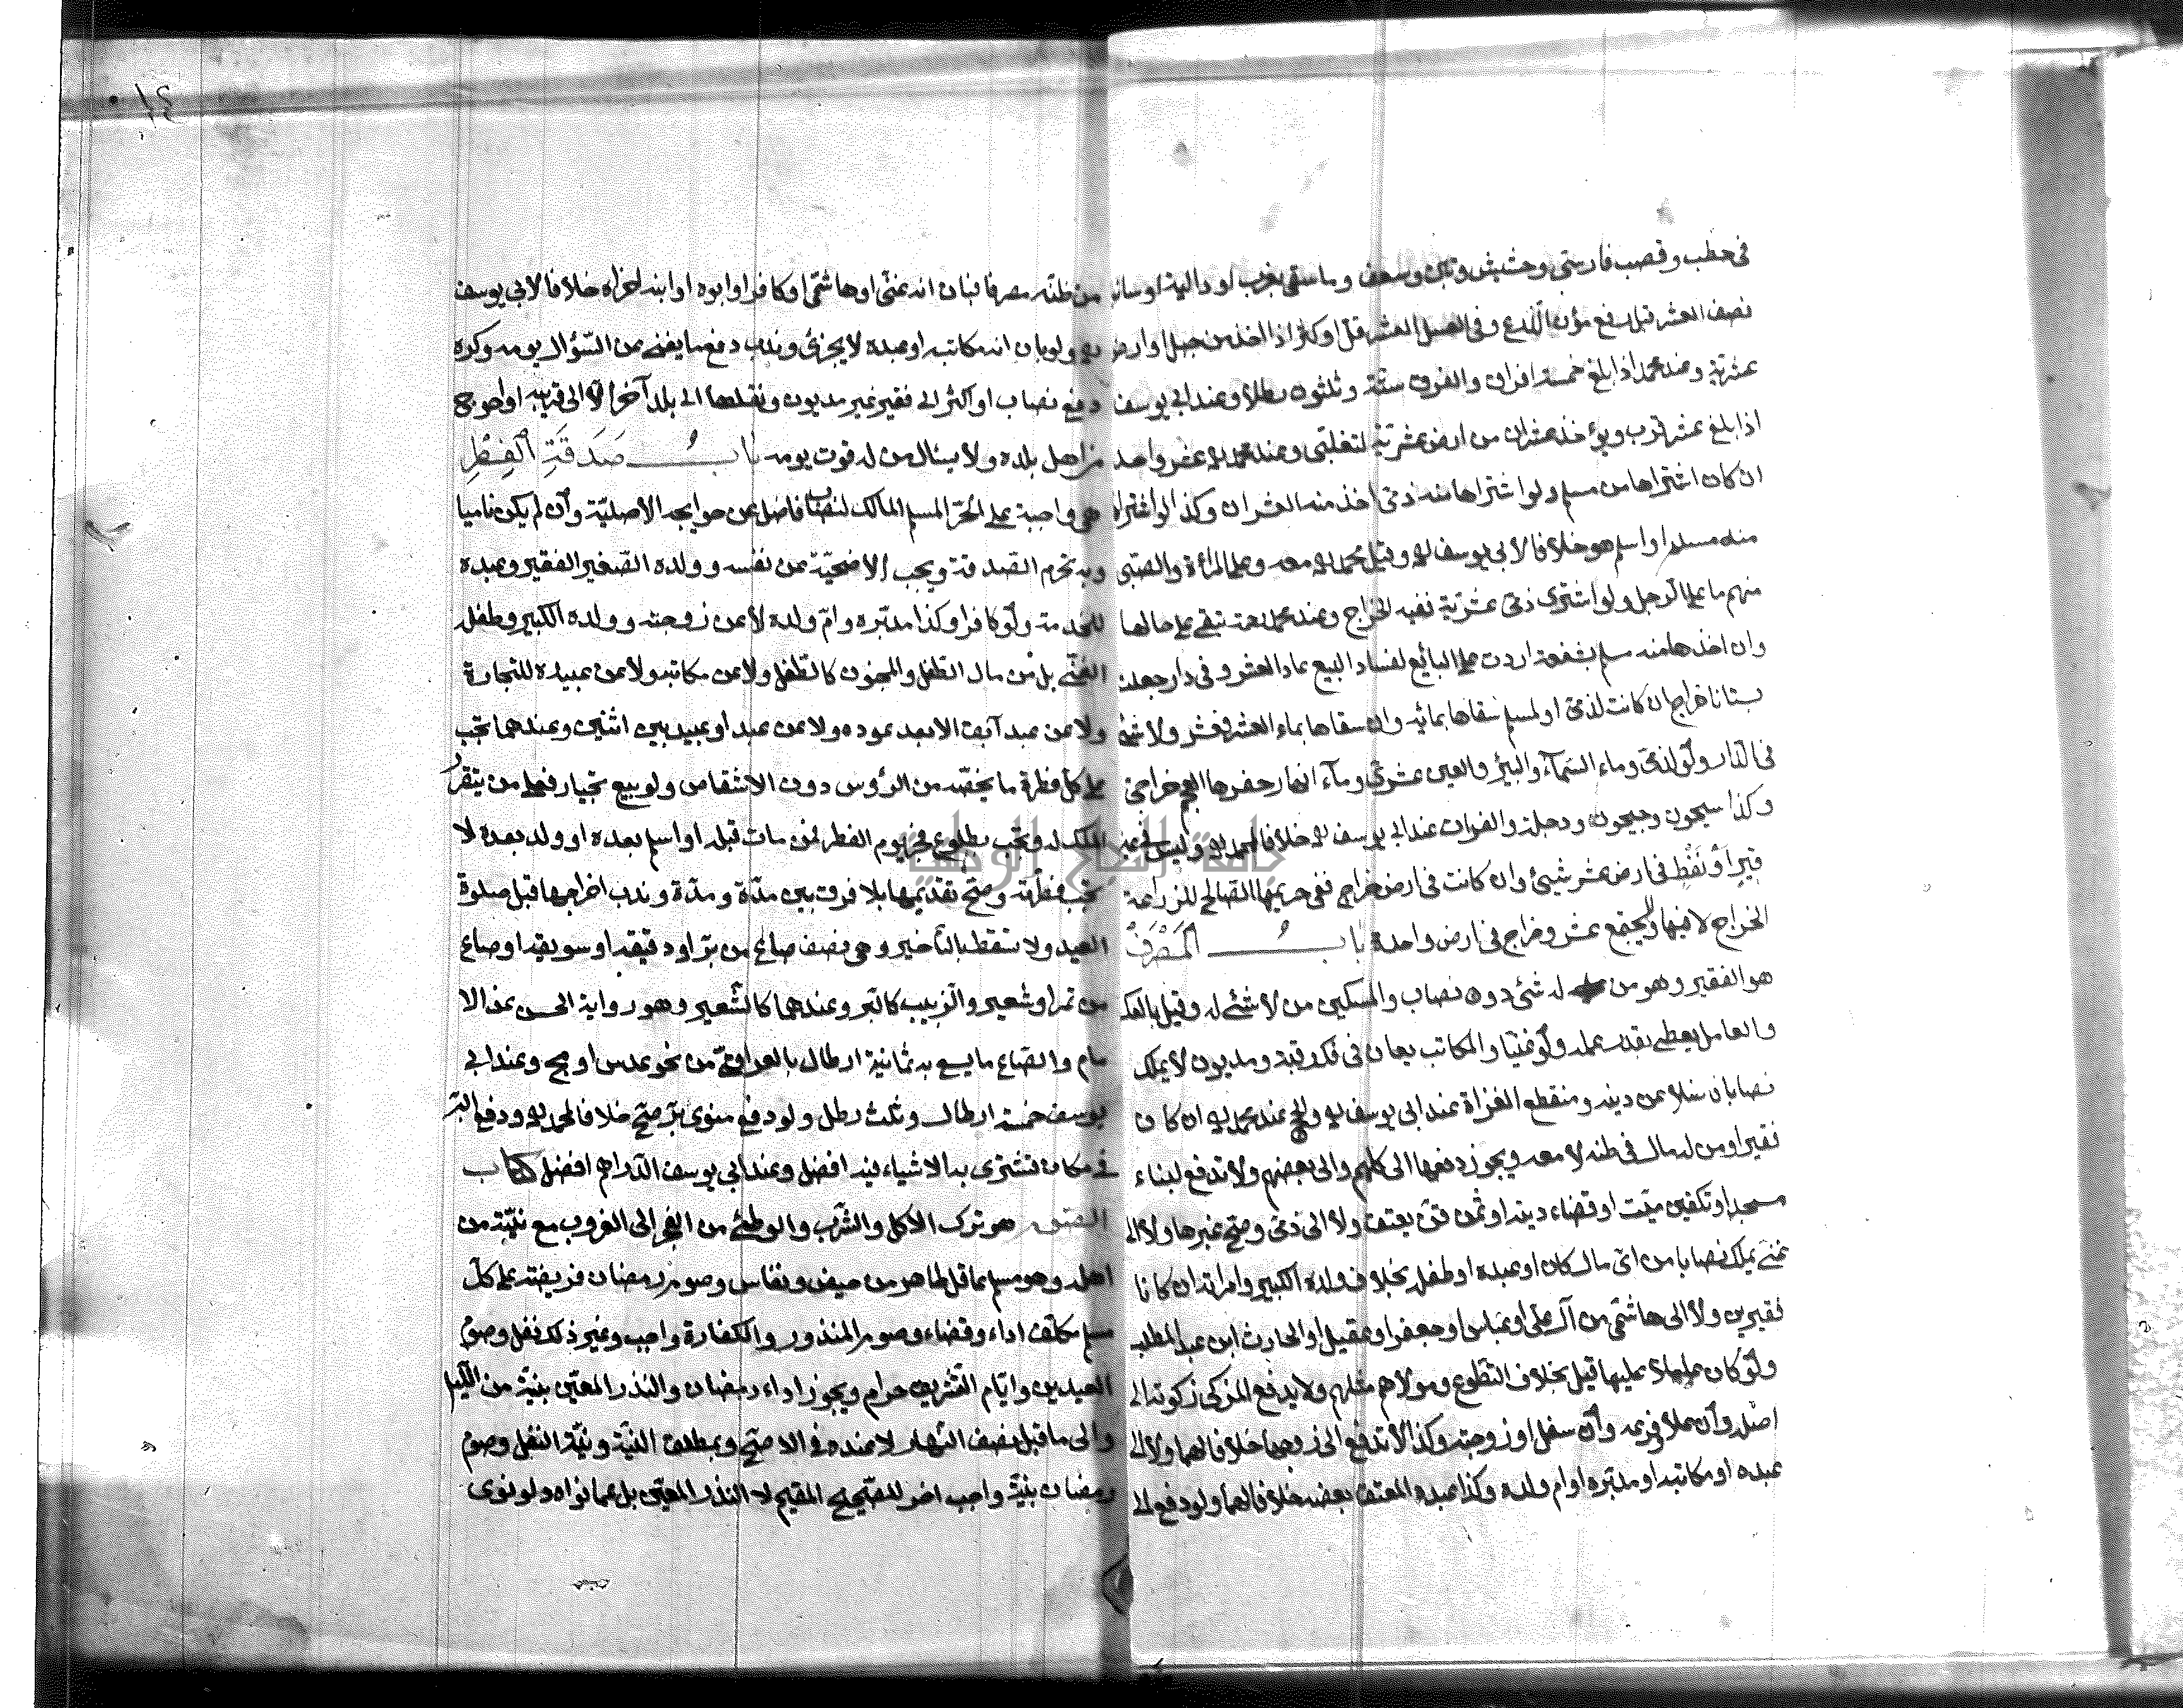 في حطب وقصب فارسي وحشيش وتبن وسعف وما سقي بغرب او دالية او سانية
نصف العشر قبل رفع مؤن الزرع وفي العسل العشر قل او كثر اذا اخذ من جبل او ارض
عشرية وعند محمد اذا بلغ خمسة افراق والفرق ستة وثلثون رطلا وعند ابي يوسف
اذا بلغ عشر قرب ويؤخذ عشران من ارض عشرية لتغلبي وعند محمد له عشر واحد
ان كان اشتراها من مسلم ولو اشتراها منه ذمي اخذ منه العشران وكذا لو اشتراها
منه مسلم او اسلم هو خلافا لابي يوسف له وقيل محمد له معه وعلى المرأة والصبي
منهم ما على الرجل ولو اشترى ذمي عشرية ففيه الخراج وعند محمد تبقى على حالها
وان اخذها منه مسلم بشفعة اردت على البائع لفساد البيع عاد العشر وفي دار جعلت
بستانا خراج ان كانت لذمي او لمسلم سقاها بمائه وان سقاها بماء العشر فعشر ولا شئ
في الدار ولو لذمي وماء السماء والبئر والعين عشري وماء انهار حفرها العجم خراجي
وكذا سيحون وجيحون ودجلة والفرات عند ابي يوسف له خلافا لمحمد له وليس في عين
قير او نفط في ارض عشر شيئ وان كانت في ارض خراج ففي حريمها الصالح للزراعة
الخراج لا فيها ولا يجتمع عشر وخراج في ارض واحدة باب المصرف
هو الفقير وهو من له شئ دون نصاب والمسكين من لا شئ له وقيل بالعكس
والعامل يعطى بقدر عمله ولو غنيا والمكاتب يعان في فك رقبته ومديون لا يملك
نصابا فاضلا عن دينه ومنقطع الغزاة عند ابي يوسف له والحج عند محمد له ان كان
فقيرا ومن له مال في وطنه لا معه ويجوز دفعها الى كلهم والى بعضهم ولا تدفع لبناء
مسجد او تكفين ميت او قضاء دينه او ثمن قن يعتق ولا الى ذمي وصح غيرها ولا الى
غني يملك نصابا من اي مال كان او عبده او طفله بخلاف ولده الكبير وامراته ان كانا
فقيرين ولا الى هاشمي من آل علي او عباس او جعفر او عقيل او الحارث ابن عبد المطلب
ولو كان عاملا عليها قيل بخلاف التطوع ومولاهم مثلهم ولا يدفع المزكي زكوته الى
اصله وان علا او فرعه وان سفل او زوجته وكذا لا تدفع الى زوجها خلافا لهما ولا الى
عبده او مكاتبه او مدبره او ام ولده وكذا عبده المعتق بعضه خلافا لهما ولو دفع الى
١٤
من ظنه مصرفا فبان انه غني او هاشمي او كافر او ابوه او ابنه اجزاه خلافا لابي يوسف
له ولو بان انه مكاتبه او عبده لا يجزئ وندب دفع ما يغني عن السؤال يومه وكره
دفع نصاب او اكثر الى فقير غير مديون ونقلها الى بلد آخر الا الى قريبه او احوج
من اهل بلده ولا يسئال من له قوت يومه باب صدقة الفطر
هي واجبة على الحر المسلم المالك لنصاب فاضل عن حوايجه الاصلية وان لم يكن ناميا
وبه تحرم الصدقة ويجب الاضحية عن نفسه وولده الصغير الفقير وعبده
للخدمة ولو كافرا وكذا مدبره وام ولده لا عن زوجته وولده الكبير وطفله
الغني بل من مال الطفل والمجنون كالطفل ولا عن مكاتبه ولا عن عبيده للتجارة
ولا عن عبد آبق الا بعد عوده ولا عن عبد او عبيد بين اثنين وعندهما تجب
على كل فطرة ما يخصه من الرؤس دون الاشقاص ولو بيع بخيار فعلى من يتقرر
الملك له وتجب بطلوع فجر يوم الفطر فمن مات قبله او اسلم بعده او ولد بعده لا
تجب فطرته وصح تقديمها بلا فرق بين مدة ومدة وندب اخراجها قبل صلوة
العيد ولا تسقط بالتأخير وهي نصف صاع من بر او دقيقه او سويقه او صاع
من تمر او شعير والزبيب كالبر وعندهما كالشعير وهو رواية الحسن عند الا
مام والصاع ما يسع به ثمانية ارطال بالعراقي من نحو عدس او مج وعند ابي
يوسف خمسة ارطال وثلث رطل ولو دفع منوي بر صح خلافا لمحمد له ودفع البر
في مكان تشترى به الاشياء فيه افضل وعند ابي يوسف الدراهم افضل كتاب
الصوم هو ترك الاكل والشرب والوطئ من الفجر الى الغروب مع نية من
اهله وهو مسلم عاقل طاهر من حيض ونفاس وصوم رمضان فريضة على كل
مسلم مكلف اداء وقضاء وصوم المنذور والكفارة واجب وغير ذلك نفل وصوم
العيدين وايام التشريق حرام ويجوز اداء رمضان والنذر المعين بنية من الليل
والى ما قبل نصف النهار لا عنده في الاصح وبمطلق النية ونية النفل وصوم
رمضان بنية واجب اخر للصحيح المقيم لا النذر المعين بل عما نواه ولو نوى